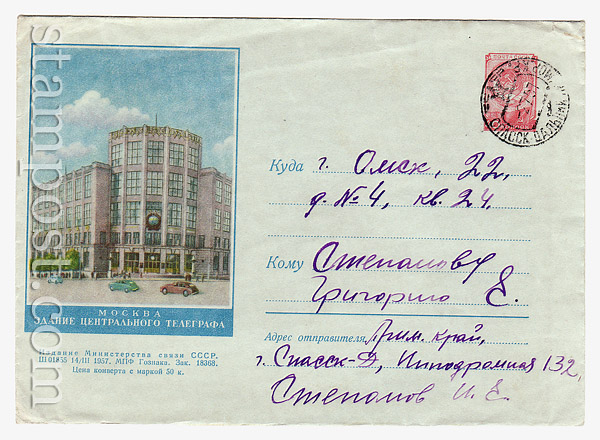 stampost.com
Куда г. Омск, 22,
д. № 4, кв. 24.
Кому Степанову
Григорию Е.
МОСКВА
ЗДАНИЕ ЦЕНТРАЛЬНОГО ТЕЛЕГРАФА
Издание Министерства связи СССР.
14/III 1957. МПФ Гознака. Зак. 18368.
Цена конверта с маркой 50 к.
Адрес отправителя Прим. край,
г. Спасск-Д, Ипподромная 132,
Степанов И. Е.
СПАССК ДАЛЬНИЙ